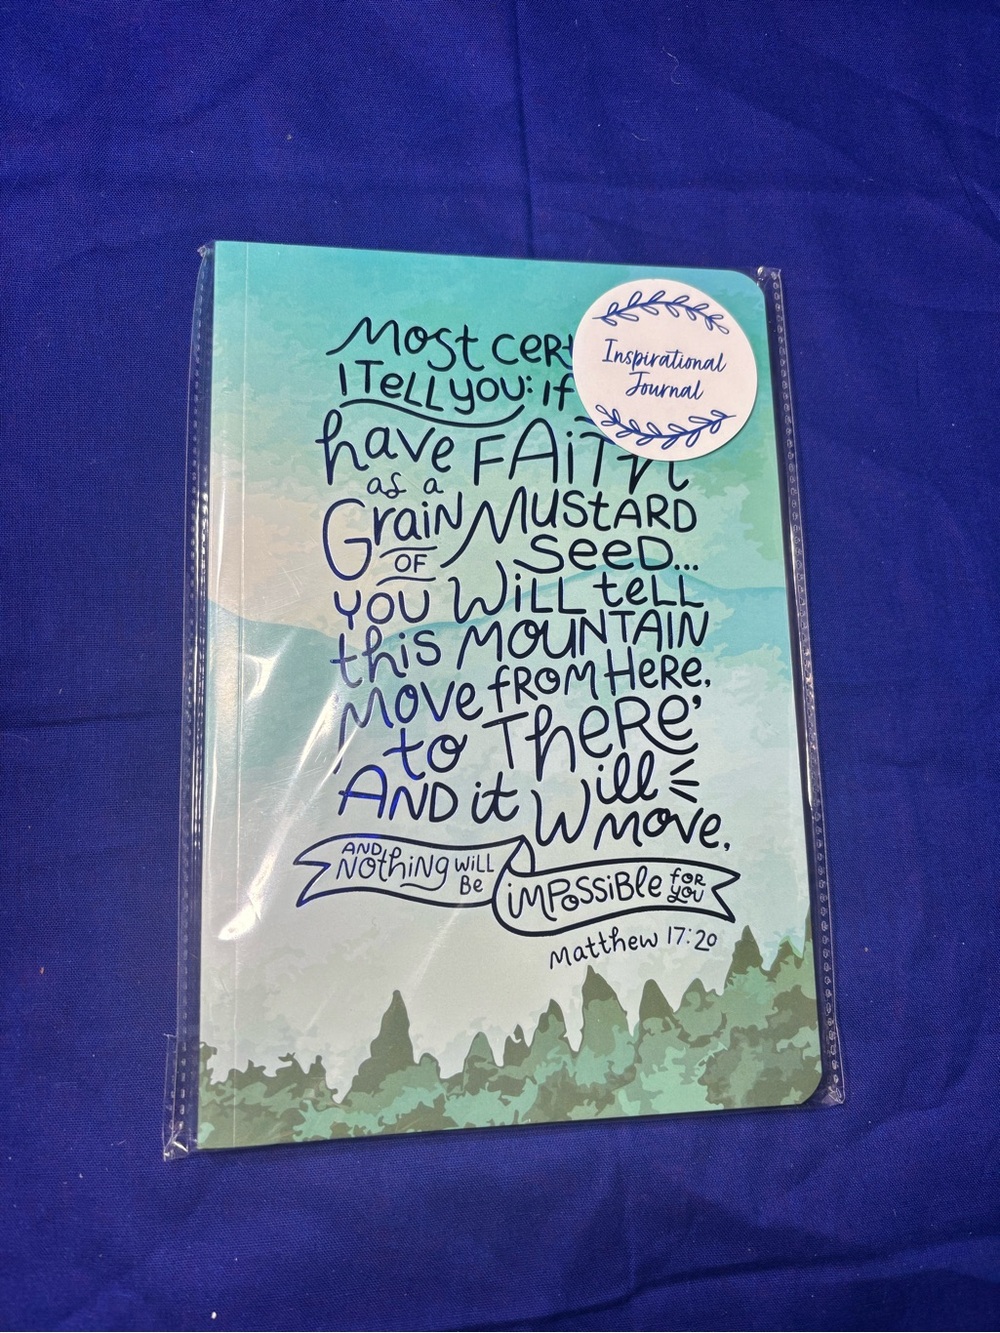 Most cert
I Tell you: If
have FAITH
as a
Grain Mustard
of Seed...
you will tell
this mountain
'move from here,
to There'
And it will
move.
And
Nothing will
Be impossible for
you
Matthew 17:20
Inspirational
Journal